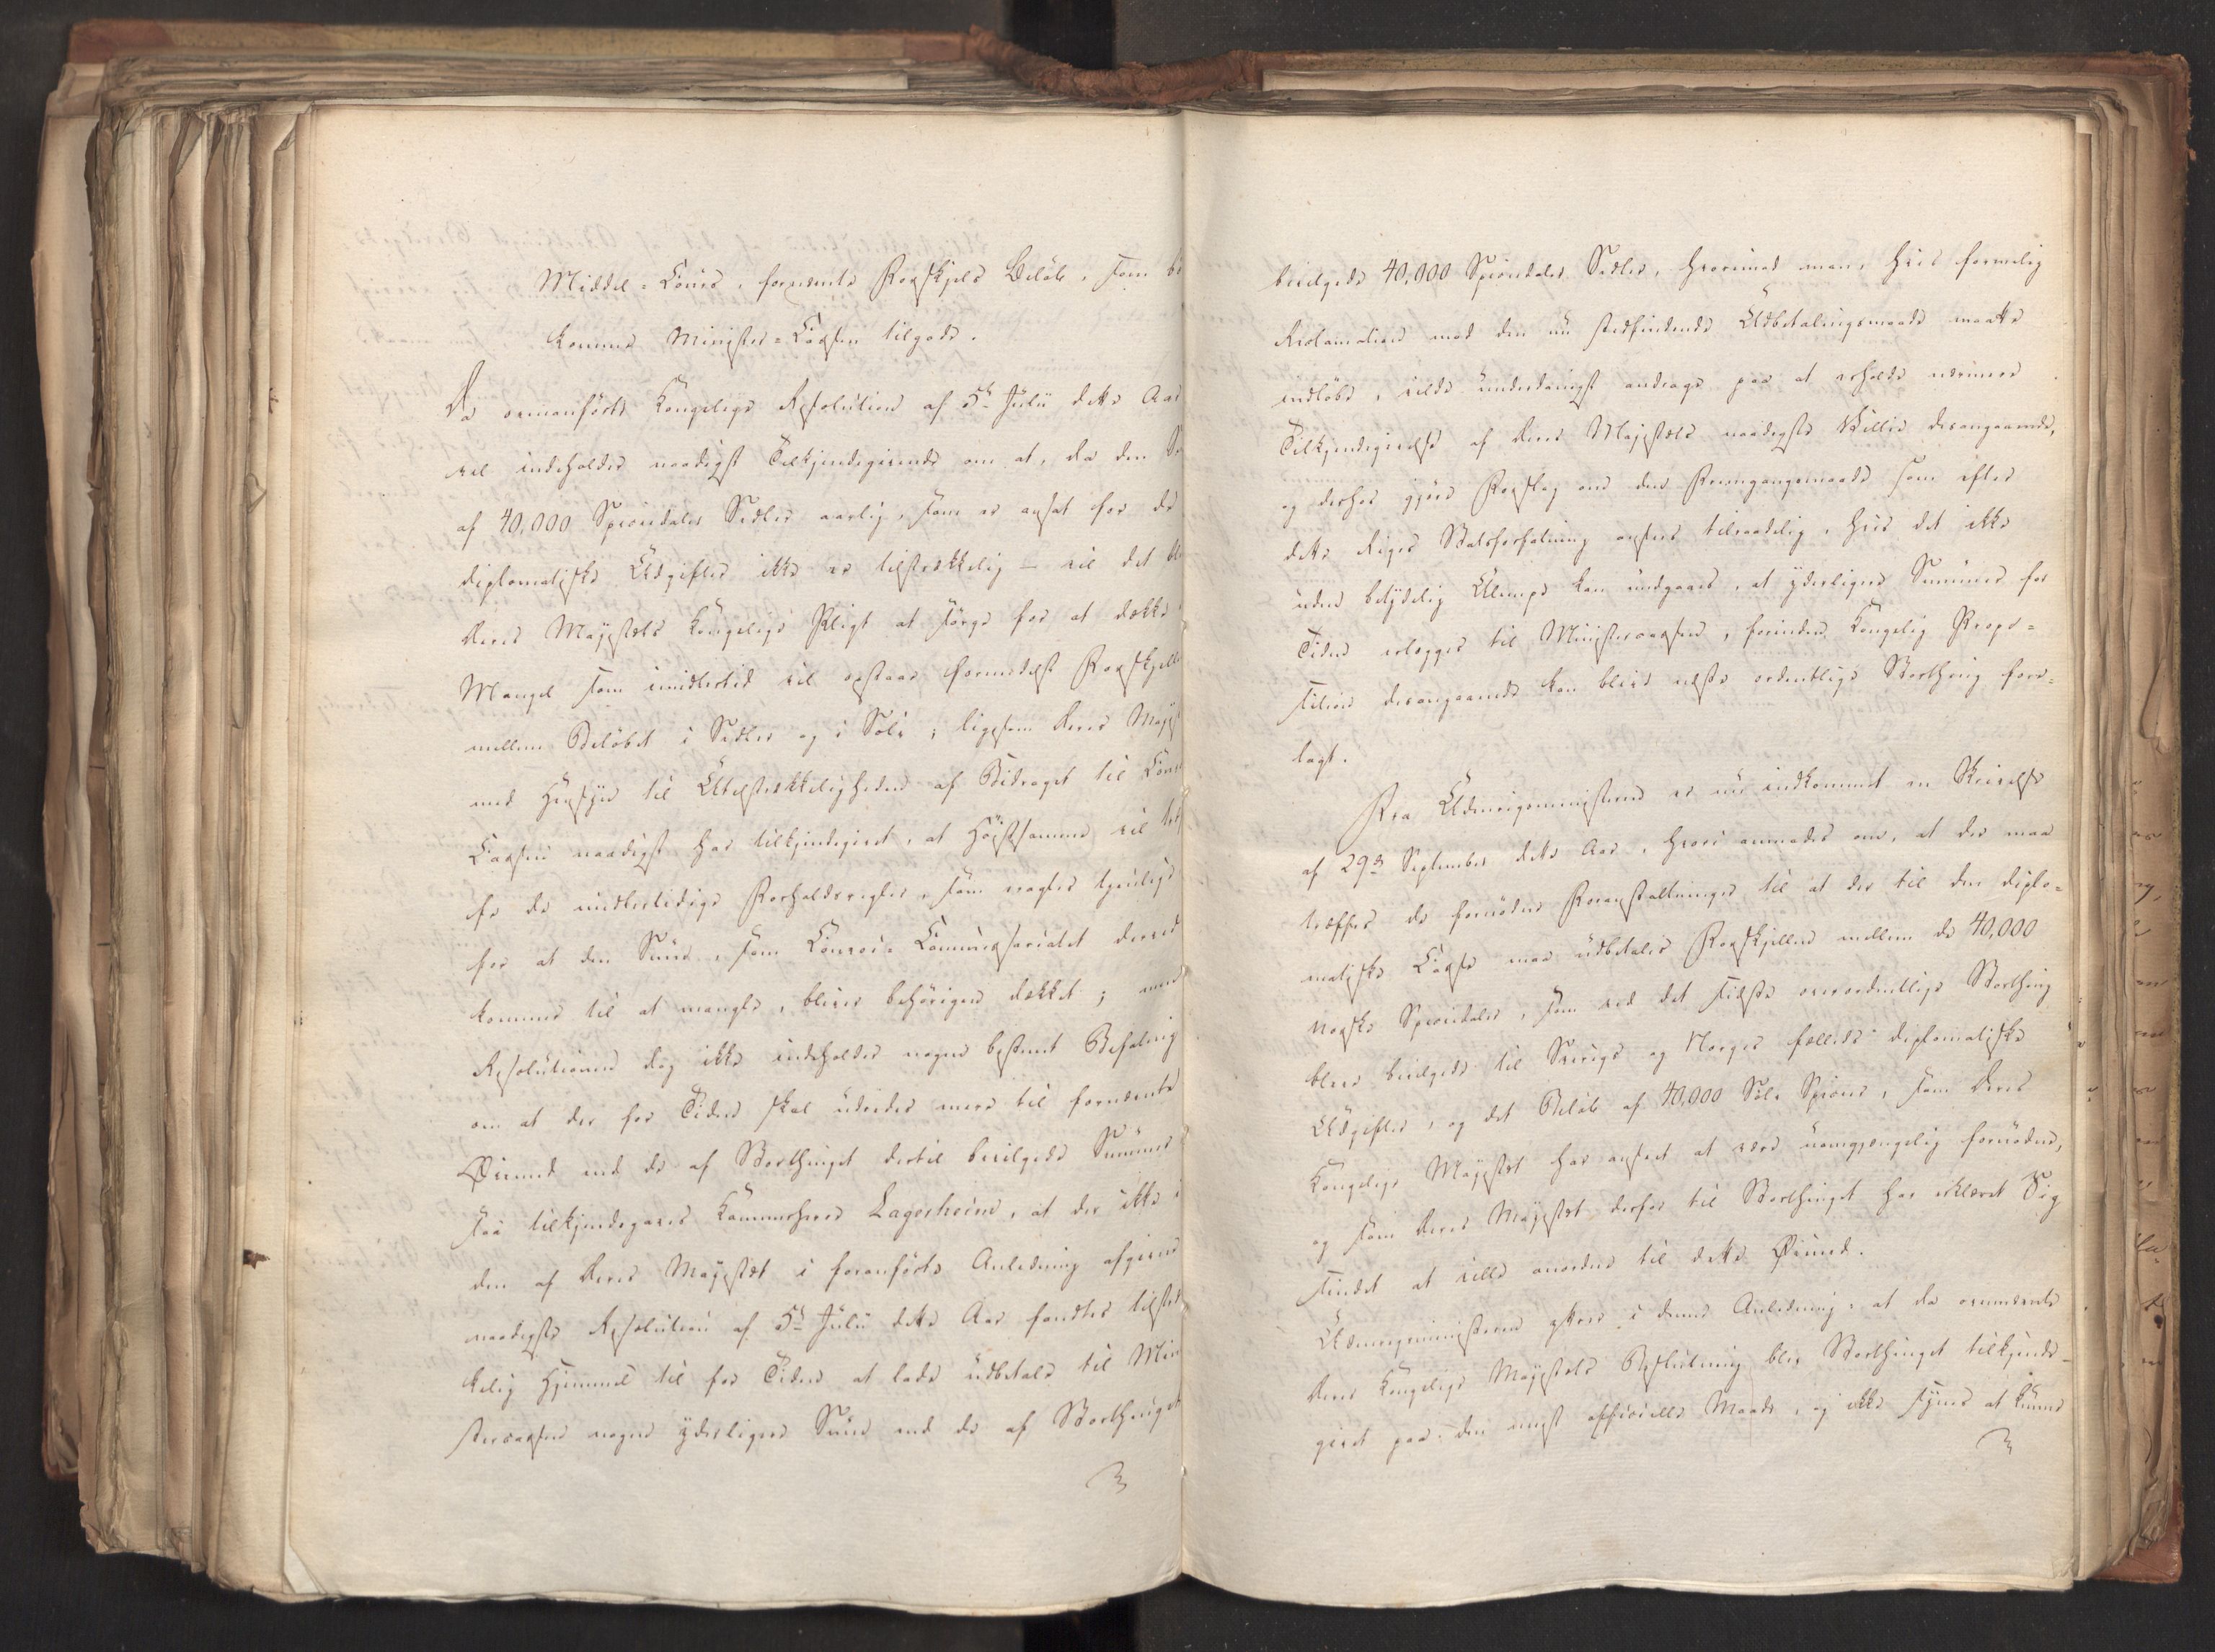 Middel-Cours, fornævnte Forskjels Beløb, som bør
komme Minister-Cassen tilgode.
Da ovenanførte Kongelige Resolution af 5te Julii dette Aar
vel indeholder naadigst Tilkjendegivende om at, da den Sum
af 40,000 Speciedaler Sedler aarlig, som er ansat for de
diplomatiske Udgifter ikke er tilstrækkelig – vil det blive
Deres Majestæts Kongelige Pligt at sørge for at dække den
Mangel som imidlertid vil opstaae formedelst Forskjellen
mellem Beløbet i Sedler og i Sølv; ligesom Deres Majestæt
med Hensyn til Utilstrækkeligheden af Bidraget til
Cassen naadigst har tilkjendegivet, at Høistsamme vil
de midlertidige Forholdsregler, som eragtes tjenlige
for at den Sum, som Convoi-Commissariatet derved
kommer til at mangle, bliver behørigen dækket; men
Resolutionen dog ikke indeholder nogen bestemt Befaling
om at der for Tiden skal udredes mere til fornævnte
Øiemed end de af Storthinget dertil bevilgede Summer
saa tilkjendegaves Kammerherre Lagerheim, at der ikke i
den af Deres Majestæt i foranførte Anledning afgivne
naadigste Resolution af 5te Julii dette Aar fandtes tilstræk-
kelig Hjemmel til for Tiden at lade udbetale til Mini-
stercassen nogen yderligere Sum end de af Storthinget
bevilgede 40,000 Speciedaler Sedler, hvorimod man, hvis formelig
Reclamation mod den nu stedfindende Udbetalingsmaade maatte
indløbe, vilde underdanigst andrage paa at erholde nærmere
Tilkjendegivelse af Deres Majestæts naadigste Villie desangaaende,
og derhos gjøre Forslag om den Fremgangsmaade som efter
dette Riges Statsforfatning ansees tilraadelig, hvis det ikke
uden betydelig Ulempe kan undgaaes, at yderligere Summer for
Tiden erlægges til Ministercassen, forinden Kongelig Propo-
sition desangaaende kan blive næste ordentlige Storthing fore-
lagt.
Fra Udenrigsministeren er nu indkommet en Skrivelse
af 29de September dette Aar, hvori anmodes om, at der maa
træffes de fornødne Foranstaltninger til at der til den diplo-
matiske Casse maa udbetales Forskjellen mellem de 40,000
norske Speciedaler, som ved det sidste overordentlige Storthing
bleve bevilgede til Sverigs og Norges fælleds diplomatiske
Udgifter, og det Beløb af 40,000 Sølv Species, som Deres
Kongelige Majestæt har anseet at være uomgjængelig fornøden,
og som Deres Majestæt derfor til Storthinget har erklæret Sig
sindet at ville anordne til dette Øiemed.
Udenrigsministeren yttrer i denne Anledning: at da ovennævnte
Deres Kongelige Majestæts Beslutning blev Storthinget tilkjende-
givet paa den meest officielle Maade, og ikke synes at kunne